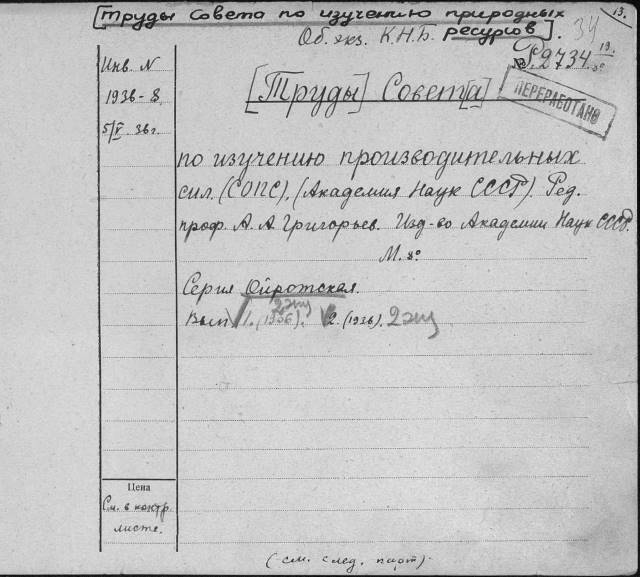 [Труды Совета по изучению природных
ресурсов].
Об. экз. К.Н.Б.
13.
34
P.2734
ПЕРЕРАБОТАНО
Инв. N
1936-8
5/V. 36г.
[Труды] Совет[а]
по изучению производительных
сил. (СОПС). (Академия Наук СССР). Ред.
проф. А. А. Григорьев. Изд-во Академии Наук СССР.
М. 8°
Серия Ойротская.
Вып. 1. (1936). 2. (1936). 2 экз
2 экз
Цена
См. в контр.
листе.
(см. след. карт).